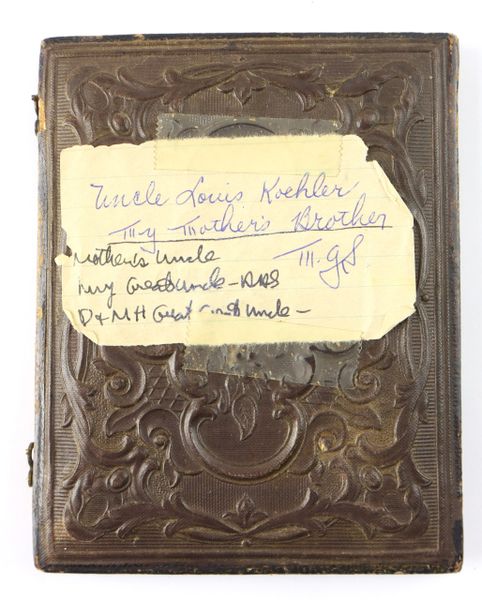 Uncle Louis Koehler
My Mother's Brother
M.G.S.
Mother's Uncle
my Great Uncle -
D & M H Great Great Uncle -